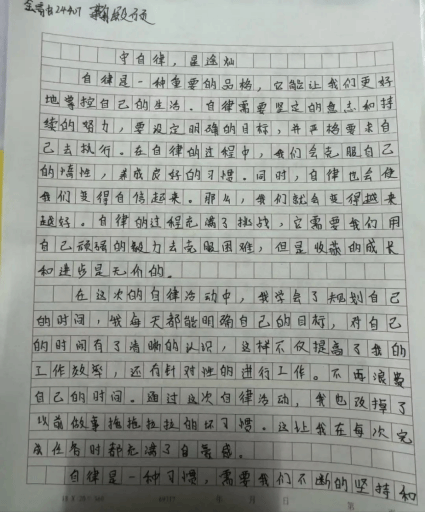 守自律，星途灿
自律是一种重要的品格，它能让我们更好
地掌控自己的生活。自律需要坚定的意志和持
续的努力，要设定明确的目标，并严格要求自
己去执行。在自律的过程中，我们会克服自己
的惰性，养成良好的习惯。同时，自律也会使
我们变得自信起来。那么，我们就会变得越来
越好。自律的过程充满了挑战，它需要我们用
自己顽强的毅力去克服困难，但是收获的成长
和进步是无价的。
在这次的自律活动中，我学会了规划自己
的时间，我每天都能明确自己的目标，对自己
的时间有了清晰的认识，这样不仅提高了我的
工作效率，还有针对性的进行工作。不再浪费
自己的时间。通过这次自律活动，我也改掉了
以前做事拖拖拉拉的坏习惯。这让我在每次完
成任务时都充满了自豪感。
自律是一种习惯，需要我们不断的坚持和